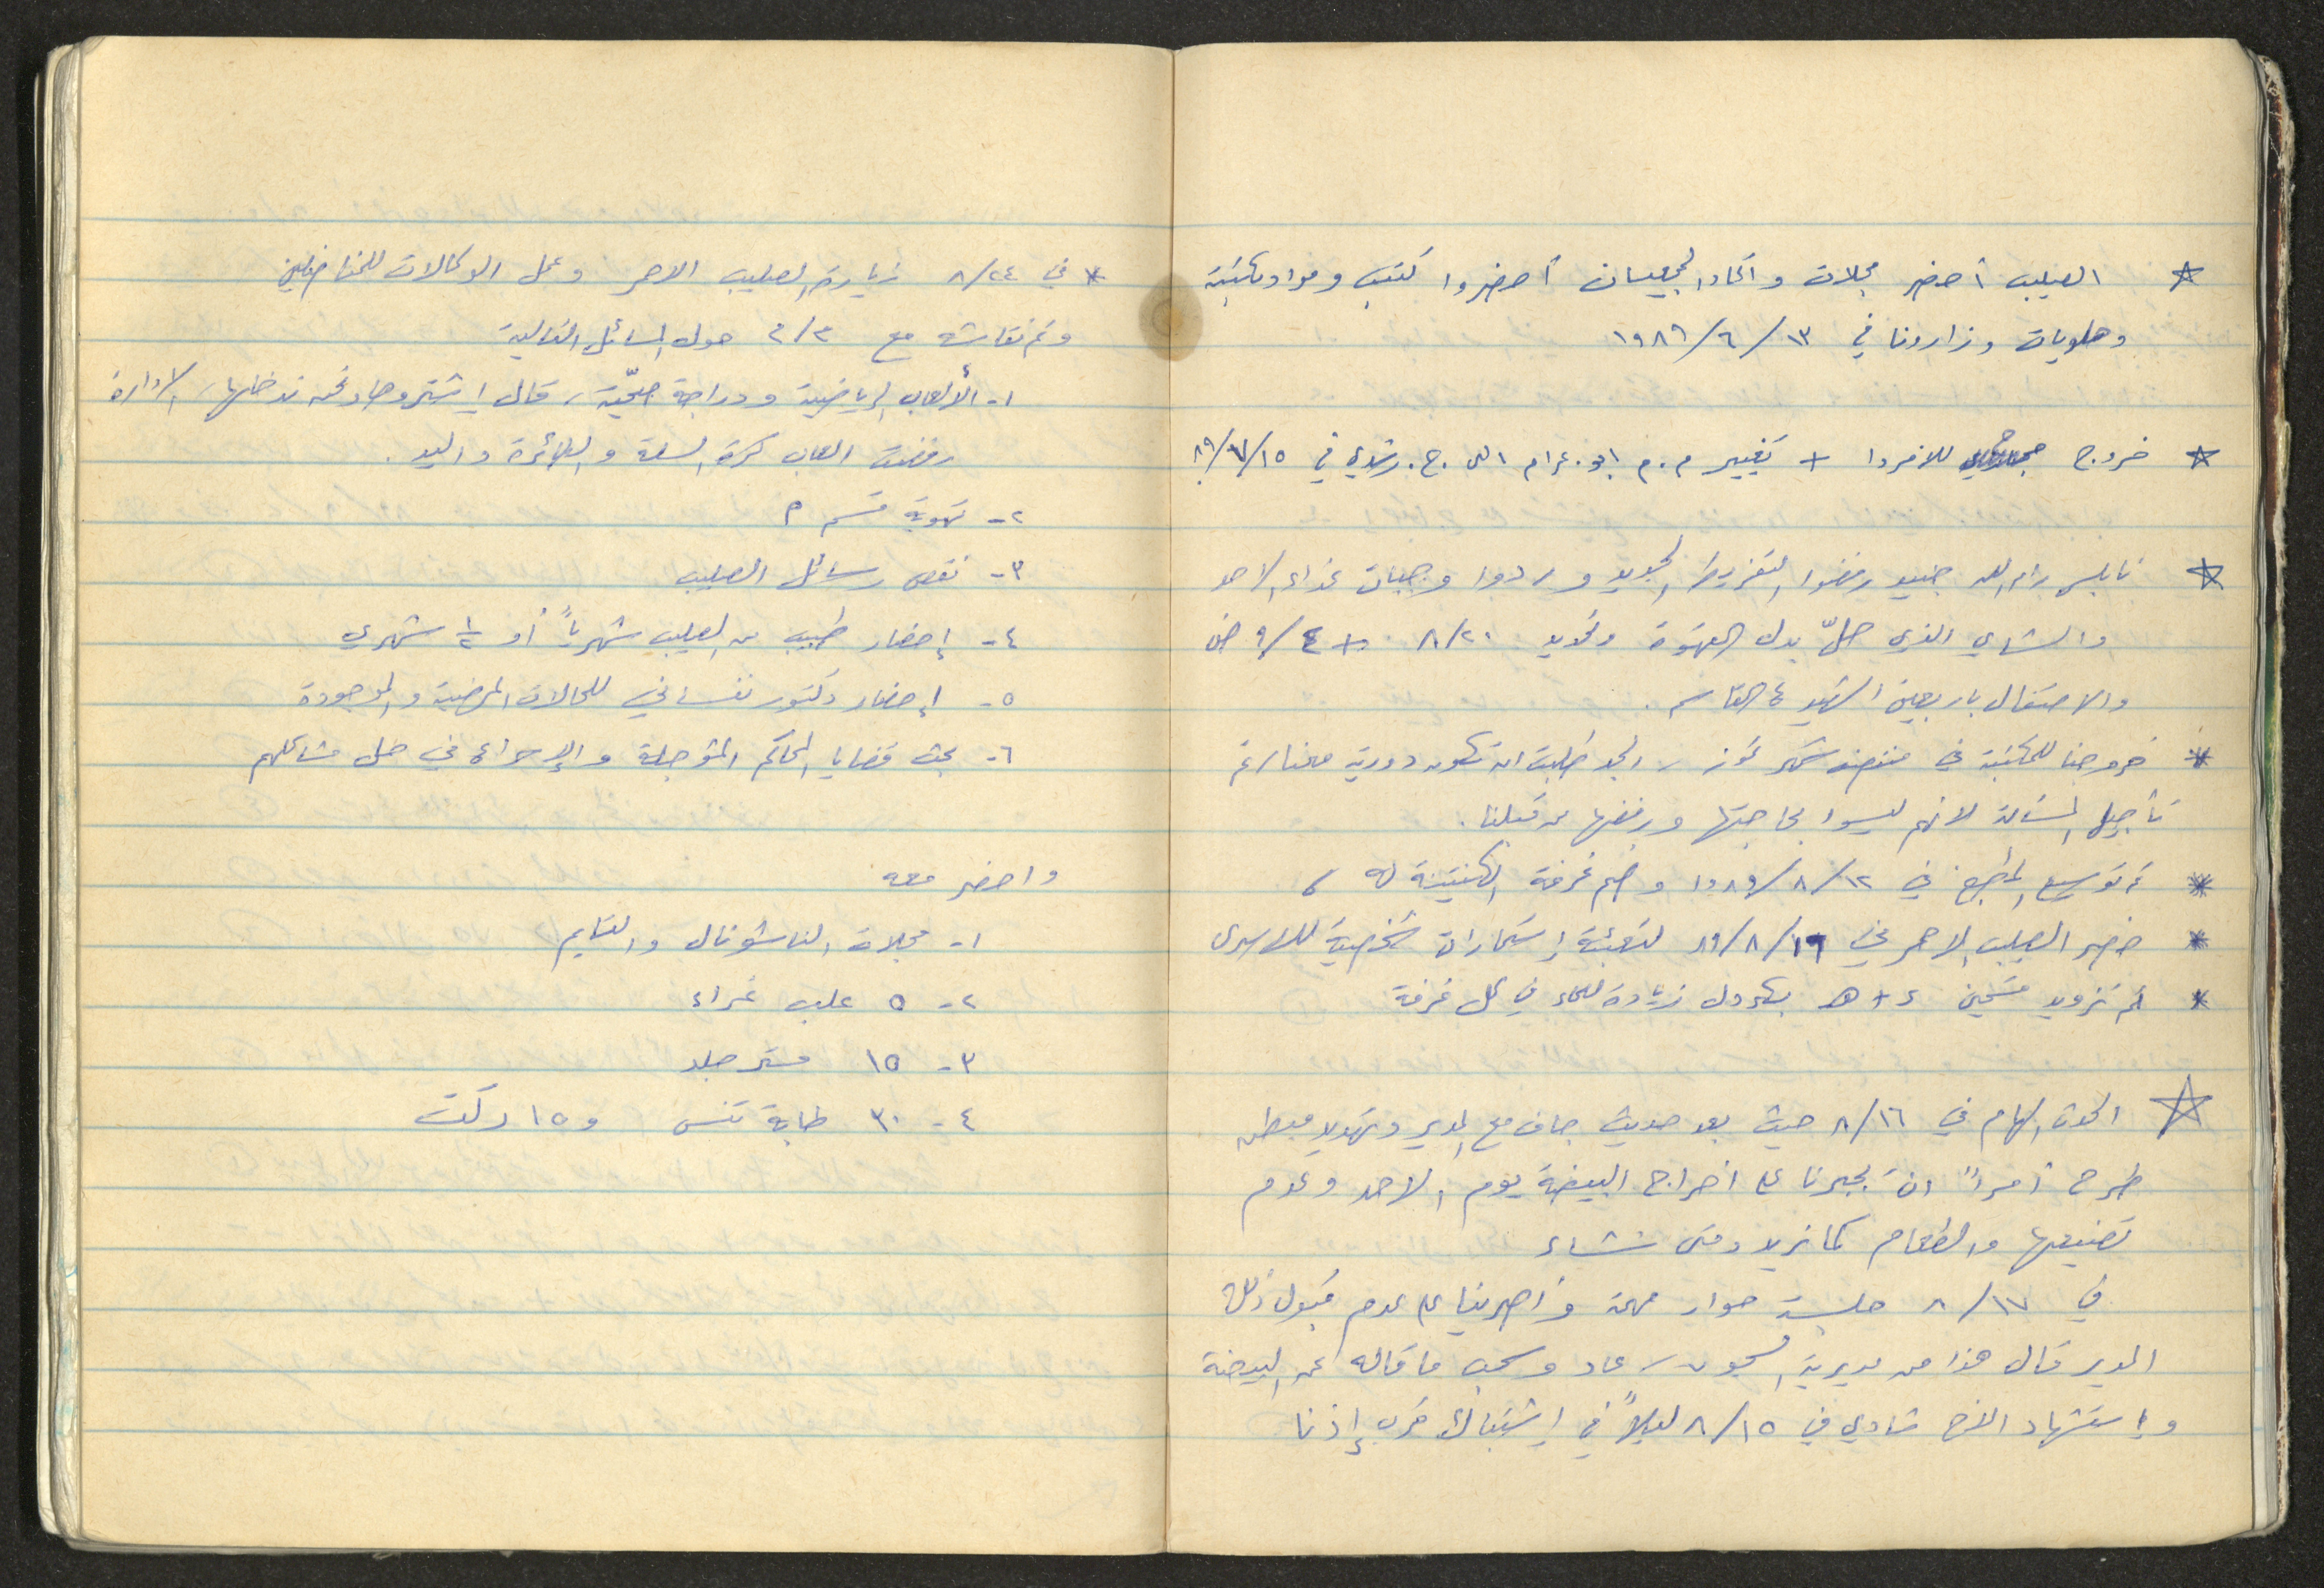 * الصليب أحضر مجلات واتحاد الجمعيات أحضروا كتب ومواد مكتبة
وحلويات وزارونا في ١٣/٦/١٩٨٦
* خروج للافردا + تغيير م.م ابو عزام الى ج. رشدي في ٨٩/٧/١٥
* نابلس رام الله جنيد رفضوا التفريط الجديد وردوا وجبات غداء الاحد
والشاي الذي حلّ بدل القهوة وتحديد ٨/٢٠ + ٩/٤
والاحتفال باربعين الشهيد ع القاسم.
* خروجنا للمكتبة في منتصف شهر تموز، طلبت ان تكون دورية
تأجيل المسألة لانهم ليسوا بحاجتها ورفضها من قبلنا.
* تم توسيع المطبخ في ٨٩/٨/١٢ وضم غرفة الكنتينة له
* حضر الصليب الاحمر في ٨٩/٨/١٦ لتعبئة إستمارات شخصية للاسرى
* تم تزويد قسمين د + هـ بكردل زيادة للماء في كل غرفة
☆ الحدث الهام في ٨/١٦ حيث بعد حديث جاف مع المدير وتهديد مبطن
طرح أمراً ان يجبرنا على اخراج البيضة يوم الاحد وعدم
تصنيعها والطعام كما نريد ومتى نشاء
في ٨/١٧ جلسة حوار مهمة وأصرينا على عدم قبول ذلك
المدير قال هذا من مديرية السجون، عاد وسحب ما قاله عن البيضة
وإستشهاد الاخ شادي في ٨/١٥ ليلاً في إشتباك قرب إذنا
* في ٨/٢٤ زيارة الصليب الاحمر وعمل الوكالات للمناضلين
وتم نقاشه مع ٢/٣ حول المسائل التالية
١- الألعاب الرياضية ودراجة صحيّة، قال إشتروها ونحن ندخلها، الادارة
رفضت العاب كرة السلة والطائرة واليد.
٢- تهوية قسم م
٣- نقص رسائل الصليب
٤- إحضار طبيب من الصليب شهرياً أو ½ شهري
٥- إحضار دكتور نفساني للحالات المرضية والموجودة
٦- بحث قضايا المحاكم المؤجلة والإجراء في حل مشاكلهم
واحضر معه
١- مجلات الناشونال والتايم
٢- ٥ علب غراء
٣- ١٥ متر جلد
٤- ٣٠ طابة تنس و ١٥ ركت